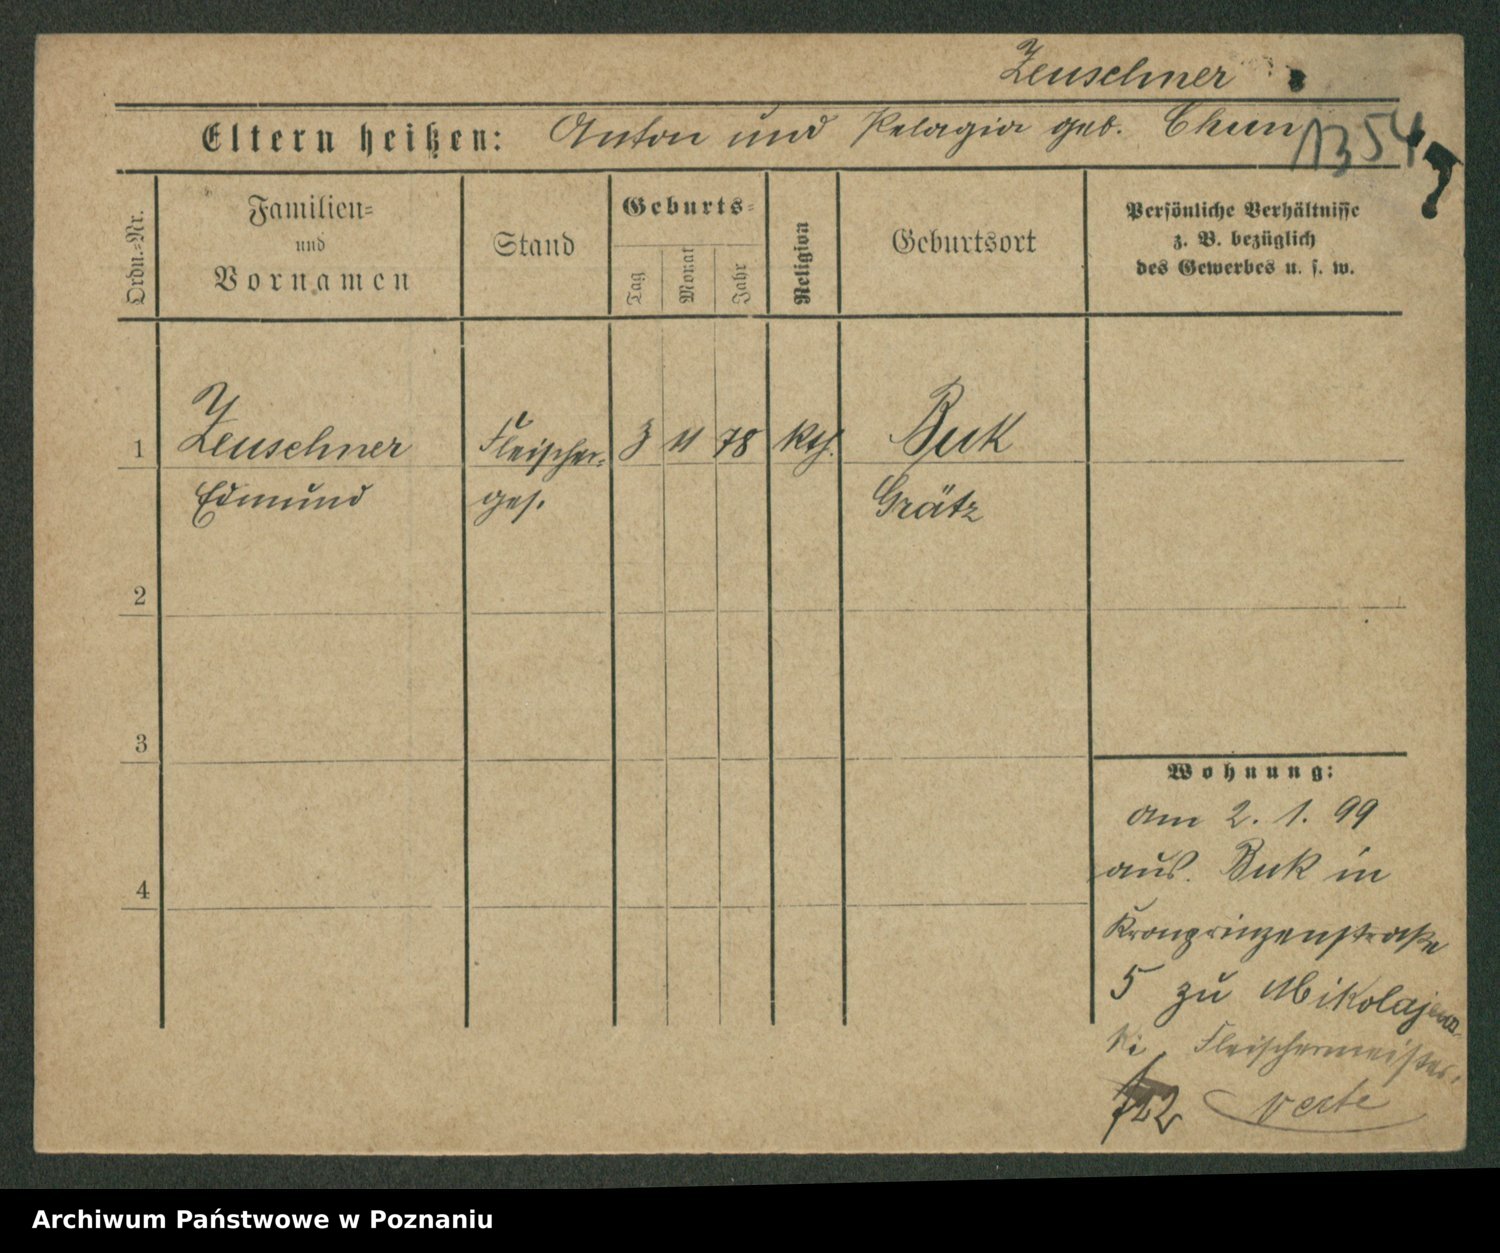 Zeuschner
Eltern heißen: Anton und Pelagia geb. Thun
1354
Ordn.-Nr.
Familien-
und
Vornamen
Stand
Geburts-
Tag
Monat
Jahr
Religion
Geburtsort
Persönliche Verhältnisse
z. B. bezüglich
des Gewerbes u. s. w.
1 Zeuschner Fleischer- 3 11 78 kth. Buk
Edmund ges. Grätz
2
3
4
Wohnung:
am 2. 1. 99
aus Buk in
Kronprinzenstraße
5 zu Mikolajews-
ki Fleischermeister
verte
Archiwum Państwowe w Poznaniu